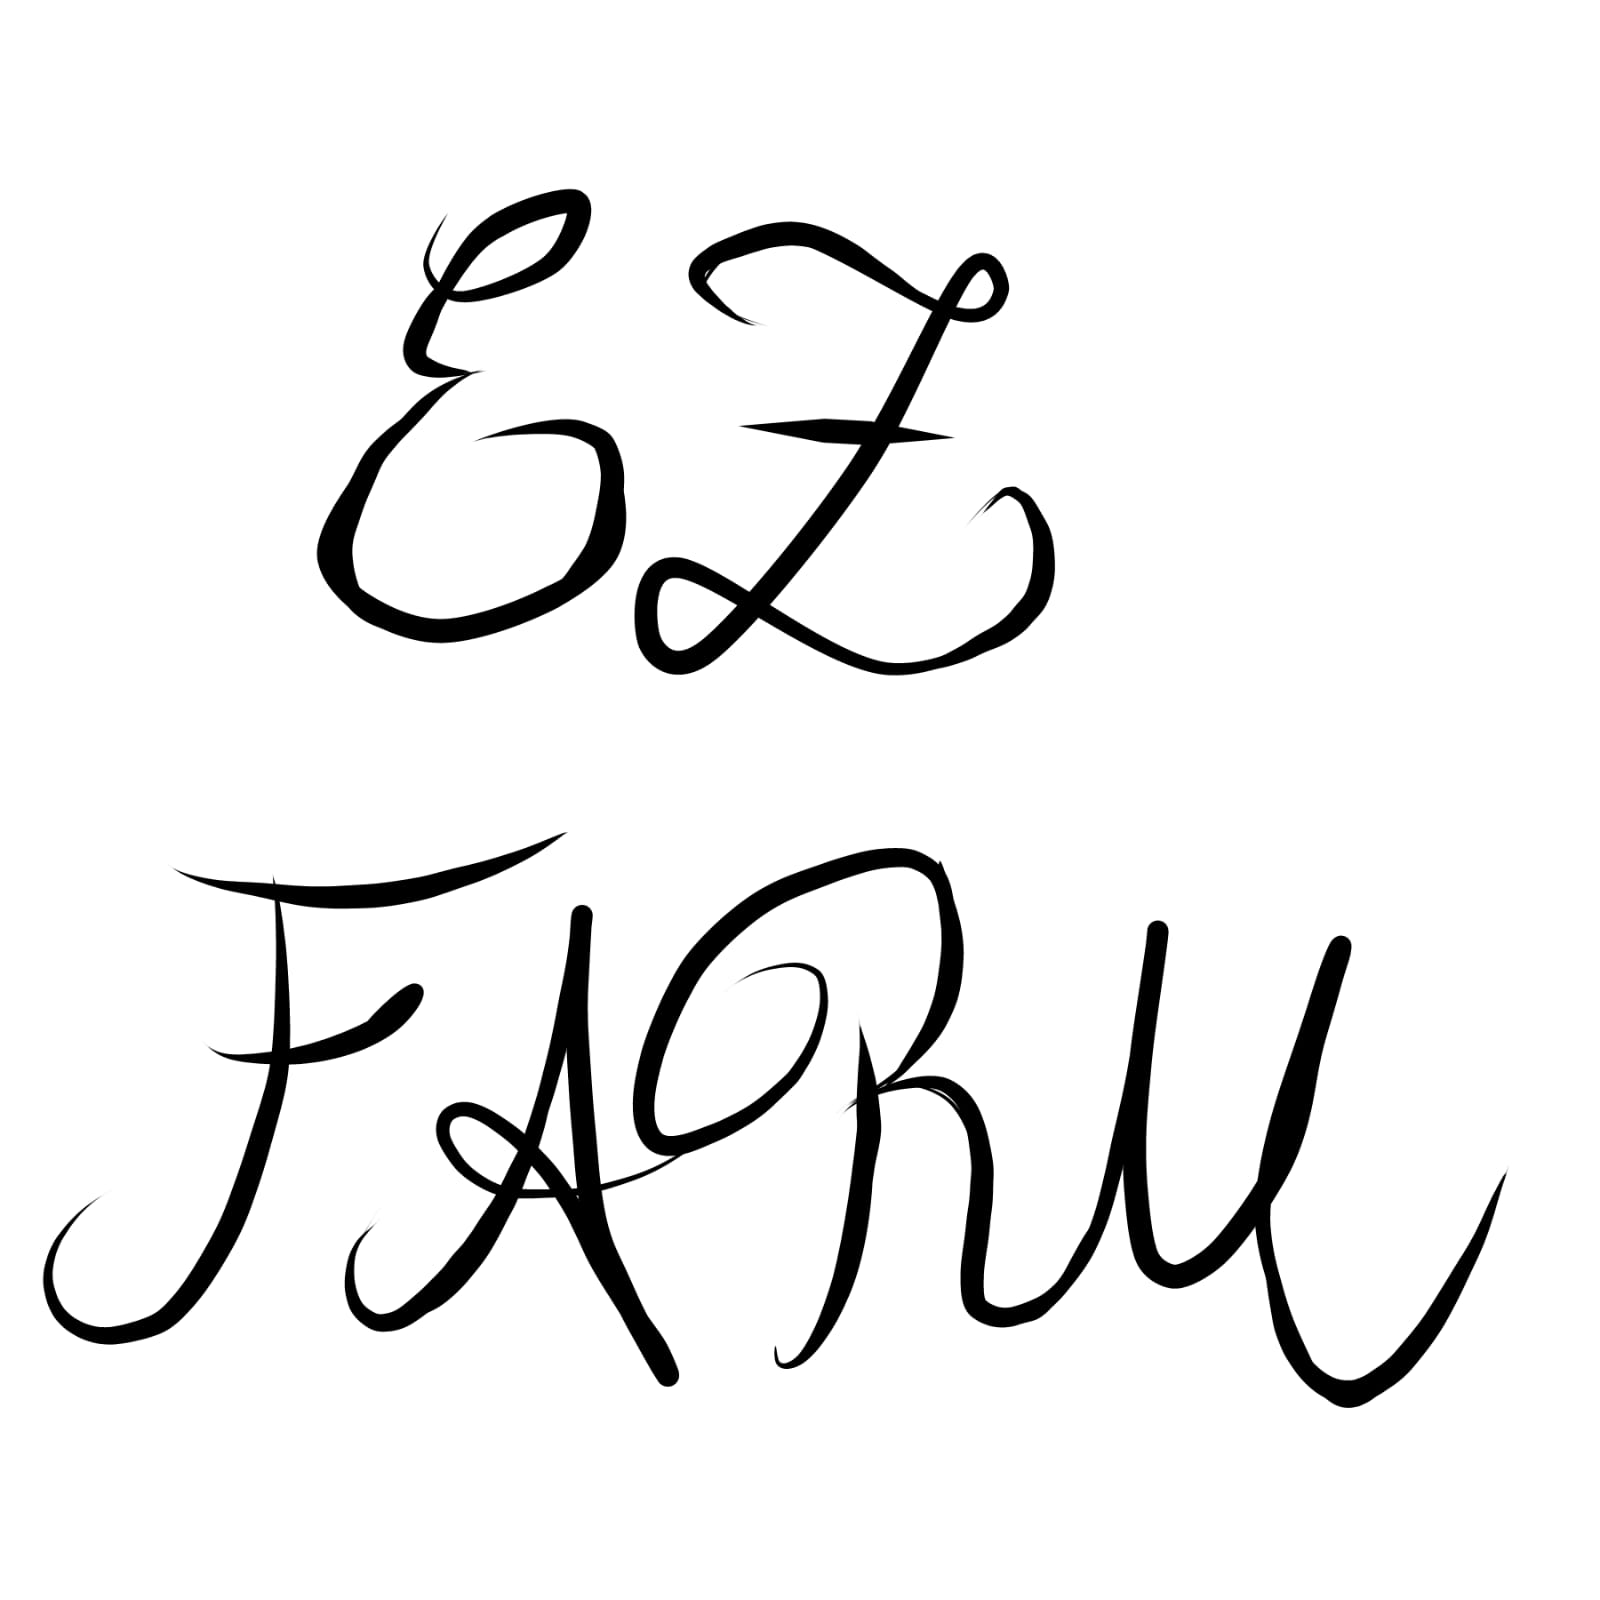 EZ
FARU